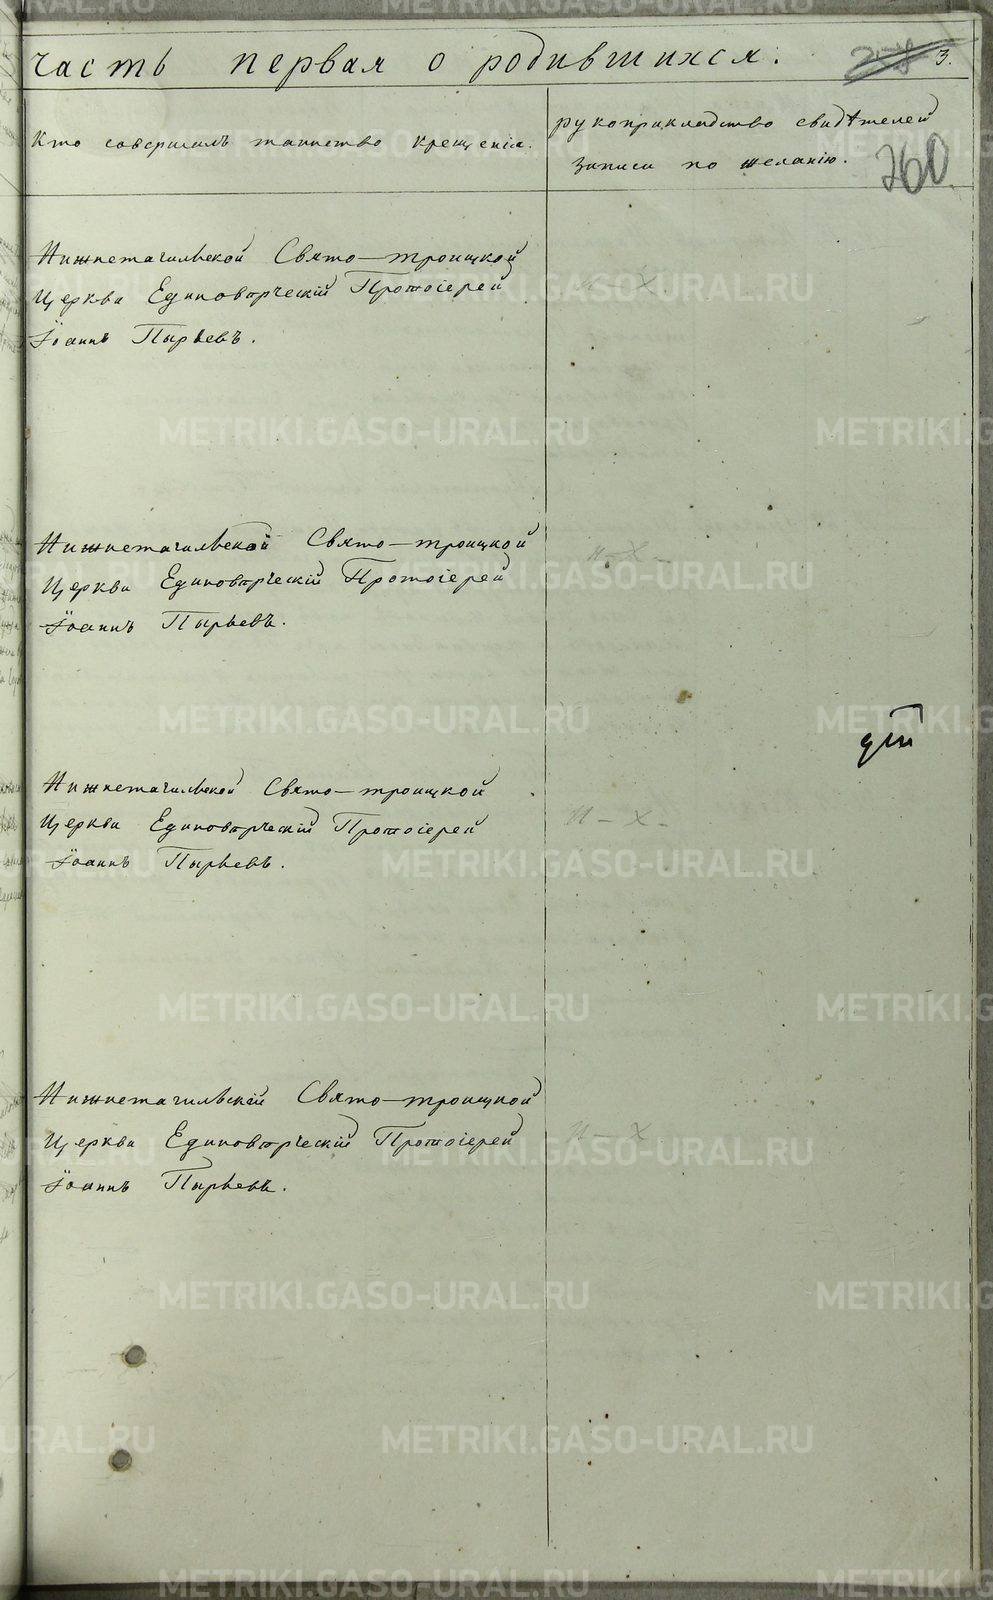 часть первая о родившихся. 3.
260
Кто совершалъ таинство крещенія.
рукоприкладство свидѣтелей
записи по желанію.
Нижнетагильской Свято-троицкой
Церкви Единовѣрческій Протоіерей
Іоаннъ Пырьевъ.
Нижнетагильской Свято-троицкой
Церкви Единовѣрческій Протоіерей
Іоаннъ Пырьевъ.
Нижнетагильской Свято-троицкой
Церкви Единовѣрческій Протоіерей
Іоаннъ Пырьевъ.
Нижнетагильскій Свято-троицкой
Церкви Единовѣрческій Протоіерей
Іоаннъ Пырьевъ.
METRIKI.GASO-URAL.RU